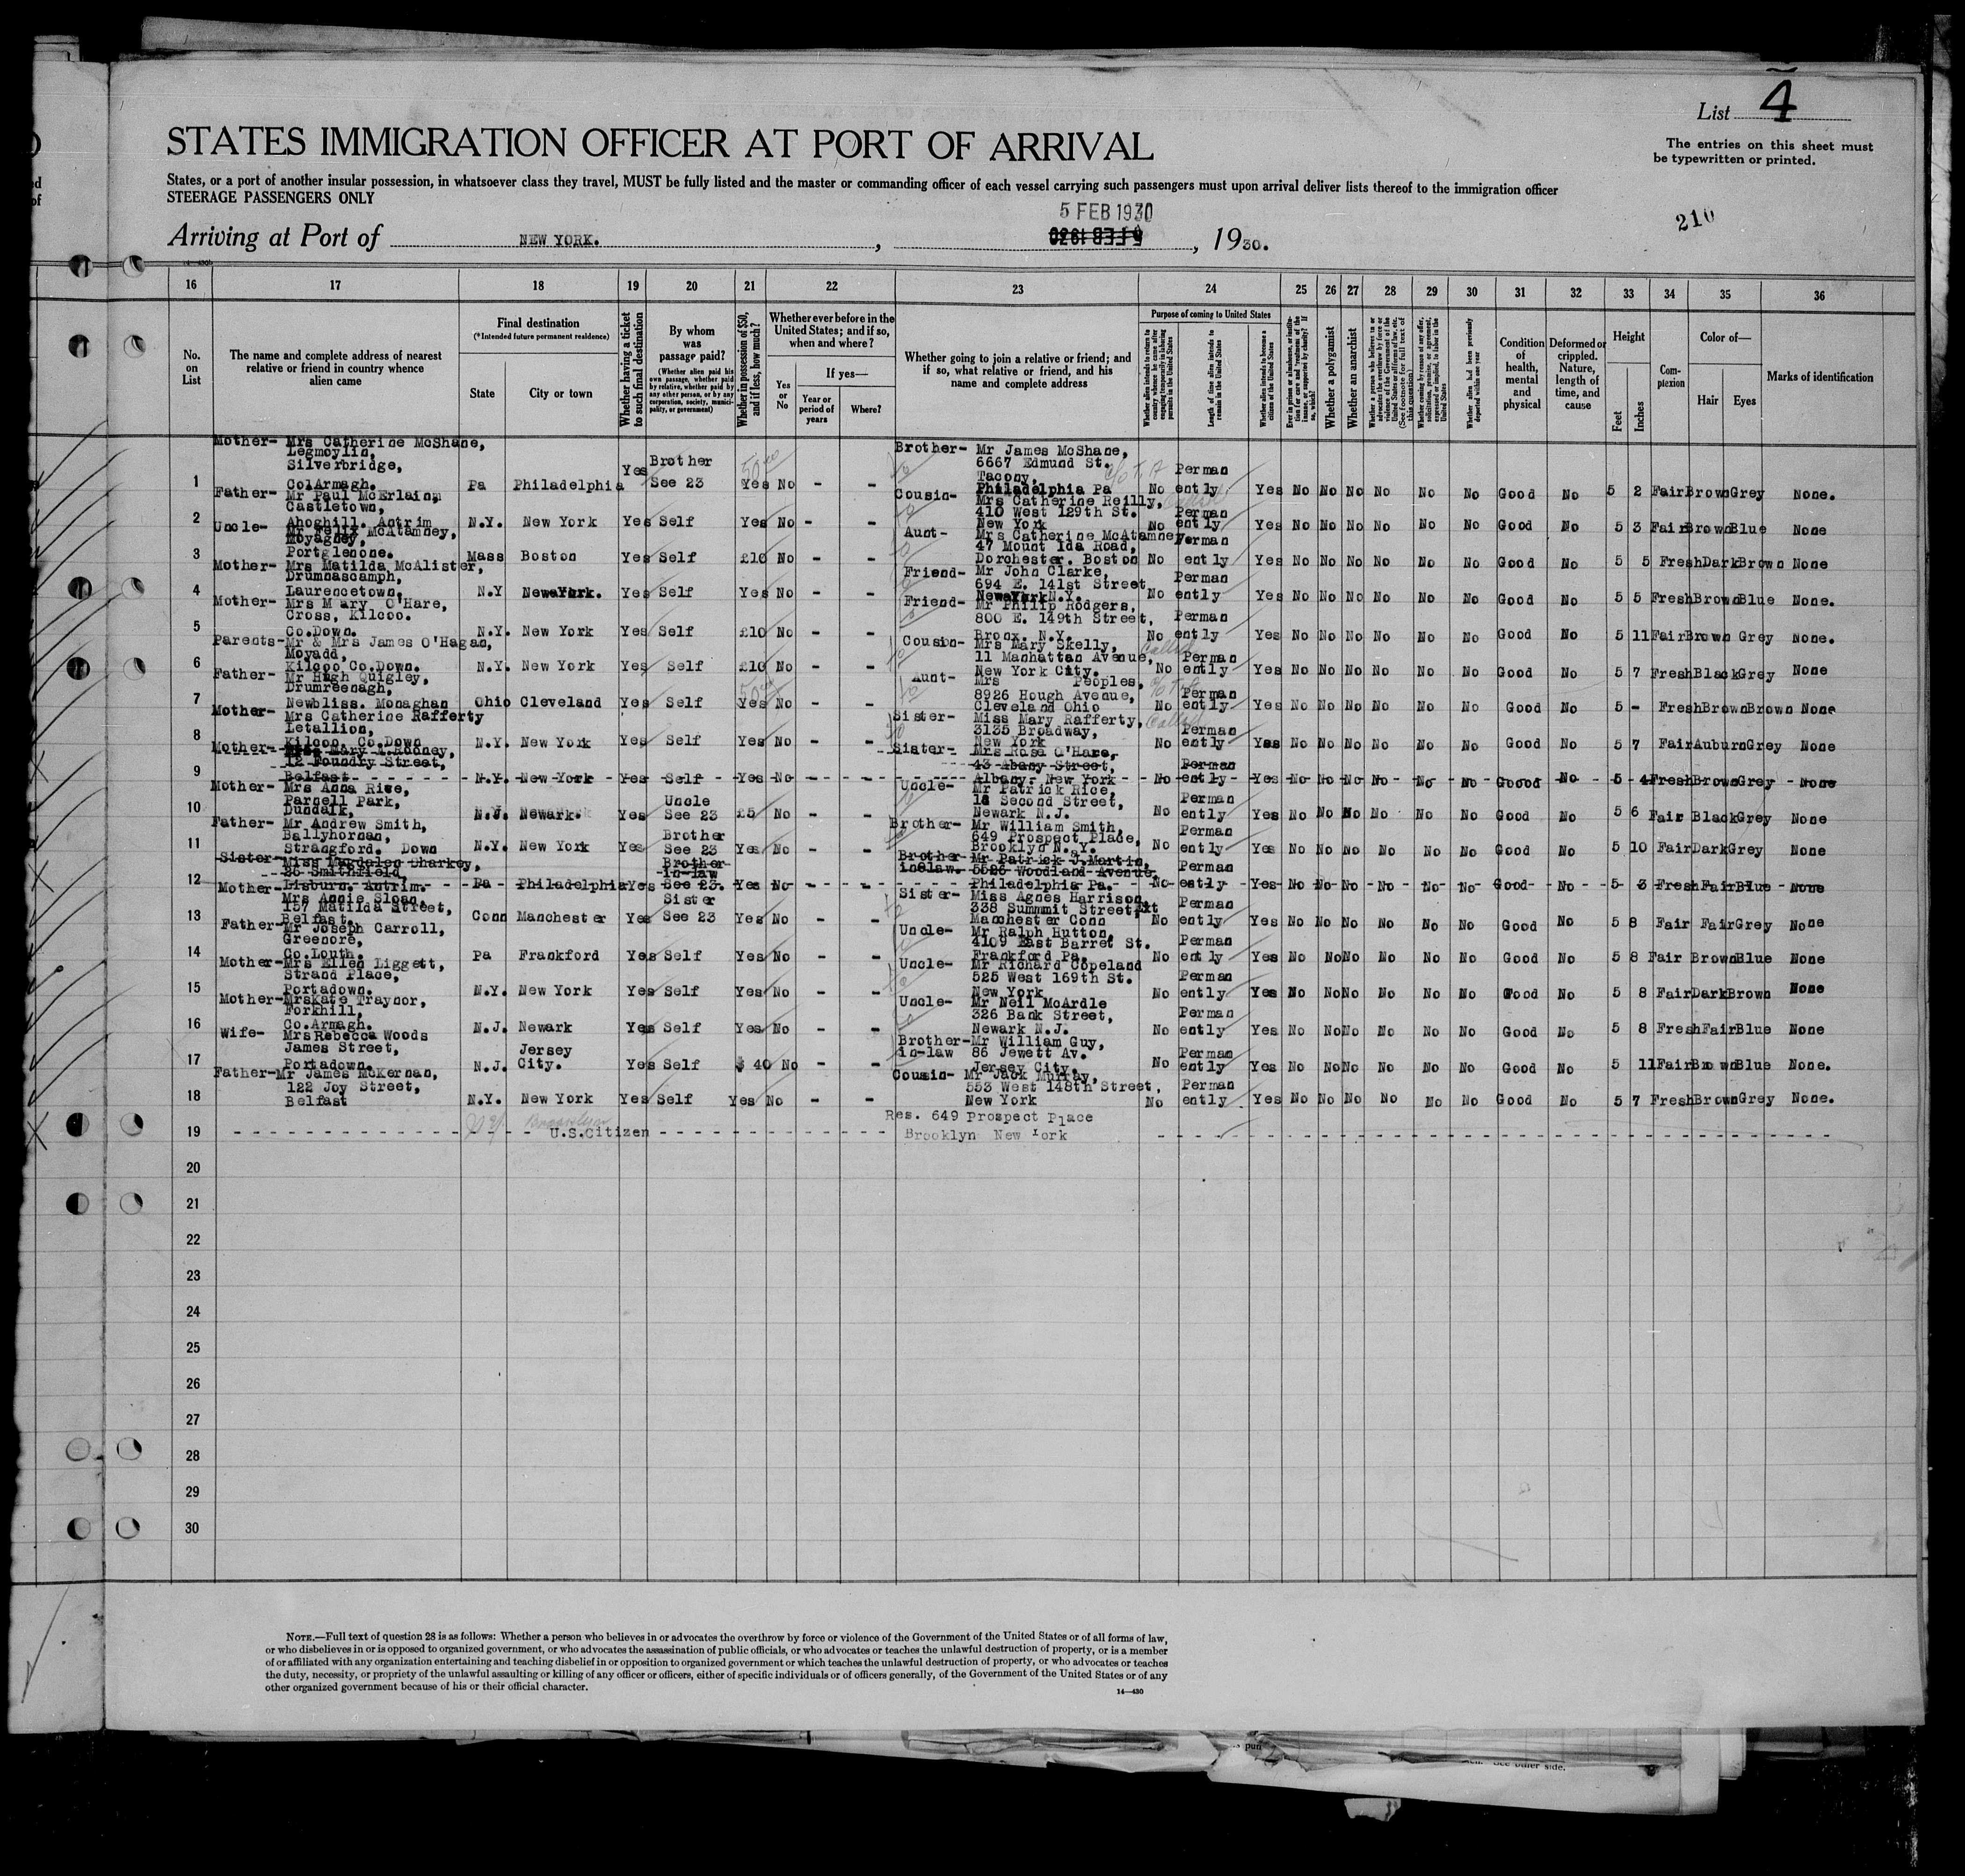 List 4
The entries on this sheet must
be typewritten or printed.
STATES IMMIGRATION OFFICER AT PORT OF ARRIVAL
States, or a port of another insular possession, in whatsoever class they travel, MUST be fully listed and the master or commanding officer of each vessel carrying such passengers must upon arrival deliver lists thereof to the immigration officer
STEERAGE PASSENGERS ONLY
5 FEB 1930
210
Arriving at Port of NEW YORK. , 5 FEB 1930 , 1930.
16 17 18 19 20 21 22 23 24 25 26 27 28 29 30 31 32 33 34 35 36
No. on List
The name and complete address of nearest relative or friend in country whence alien came
Final destination
(*Intended future permanent residence)
State
City or town
Whether having a ticket to such final destination
By whom was passage paid?
(Whether alien paid his own passage, whether paid by relative, whether paid by any other person, or by any corporation, society, municipality, or government)
Whether in possession of $50, and if less, how much?
Whether ever before in the United States; and if so, when and where?
Yes or No
If yes—
Year or period of years
Where?
Whether going to join a relative or friend; and if so, what relative or friend, and his name and complete address
Purpose of coming to United States
Length of time alien intends to remain in the United States
Whether alien intends to become a citizen of the United States
Whether a polygamist
Whether an anarchist
Condition of health, mental and physical
Deformed or crippled. Nature, length of time, and cause
Height
Feet
Inches
Complexion
Color of—
Hair
Eyes
Marks of identification
1 Mother- Mrs Catherine McShane, Legmoylin, Silverbridge, Co.Armagh. Pa Philadelphia Yes Brother See 23 50 Yes No - - Brother- Mr James McShane, 6667 Edmund St. Tacony, Philadelphia Pa No Permanently Yes No No No No No No Good No 5 2 Fair Brown Grey None.
2 Father- Mr Paul McErlain, Castletown, Ahoghill. Antrim N.Y. New York Yes Self Yes No - - Cousin- Mrs Catherine Reilly, 410 West 129th St. New York No Permanently Yes No No No No No No Good No 5 3 Fair Brown Blue None
3 Uncle- Mr Felix McAtamney, Moyagney, Portglenone. Mass Boston Yes Self £10 No - - Aunt- Mrs Catherine McAtamney 47 Mount Ida Road, Dorchester. Boston No Permanently Yes No No No No No No Good No 5 5 Fresh Dark Brown None
4 Mother- Mrs Matilda McAlister, Drumnascamph, Laurencetown. N.Y New York. Yes Self Yes No - - Friend- Mr John Clarke, 694 E. 141st Street New York N.Y. No Permanently Yes No No No No No No Good No 5 5 Fresh Brown Blue None.
5 Mother- Mrs Mary O'Hare, Cross, Kilcoo. Co.Down. N.Y. New York Yes Self £10 No - - Friend- Mr Philip Rodgers, 800 E. 149th Street, Bronx. N.Y. No Permanently Yes No No No No No No Good No 5 11 Fair Brown Grey None.
6 Parents- Mr & Mrs James O'Hagan, Moyadd, Kilcoo Co.Down. N.Y. New York Yes Self £10 No - - Cousin- Mrs Mary Skelly, 11 Manhattan Avenue, New York City. No Permanently Yes No No No No No No Good No 5 7 Fresh Black Grey None
7 Father- Mr Hugh Quigley, Drumreenagh, Newbliss. Monaghan Ohio Cleveland Yes Self 50 Yes No - - Aunt- Mrs Peoples, 8926 Hough Avenue, Cleveland Ohio No Permanently Yes No No No No No No Good No 5 - Fresh Brown Brown None
8 Mother- Mrs Catherine Rafferty Letallion, Kilcoo. Co.Down N.Y. New York Yes Self Yes No - - Sister- Miss Mary Rafferty, 3135 Broadway, New York No Permanently Yes No No No No No No Good No 5 7 Fair Auburn Grey None
9 Mother- Mary M.Rooney, 12 Foundry Street, Belfast N.Y. New York Yes Self Yes No - - Sister- Mrs Rose O'Hare, 43 Abany Street, Albany. New York No Permanently Yes No No No No No No Goood No 5 4 Fresh Brown Grey None
10 Mother- Mrs Anna Rice, Parnell Park, Dundalk, N.J. Newark. Yes Uncle See 23 £5 No - - Uncle- Mr Patrick Rice, 18 Second Street, Newark N.J. No Permanently Yes No No No No No No Good No 5 6 Fair Black Grey None
11 Father- Mr Andrew Smith, Ballyhornan, Strangford. Down N.Y. New York Yes Brother See 23 Yes No - - Brother- Mr William Smith, 649 Prospect Place, Brooklyn N.Y. No Permanently Yes No No No No No No Good No 5 10 Fair Dark Grey None
12 Sister- Miss Magdalen Sharkey, 25 Smithfield, Lisburn. Antrim. Pa Philadelphia Yes Brother in-law See 23. Yes No - - Brother inelaw. Mr Patrick J.Martin, 5526 Woodland Avenue, Philadelphia Pa. No Permanently Yes No No No No No No Good No 5 3 Fresh Fair Blue None
13 Mother- Mrs Annie Sloan, 157 Matilda Street, Belfast. Conn Manchester Yes Sister See 23 Yes No - - Sister- Miss Agnes Harrison, 338 Summmit Street, Manchester Conn No Permanently Yes No No No No No No Good No 5 8 Fair Fair Grey None
14 Father- Mr Joseph Carroll, Greenore, Co.Louth. Pa Frankford Yes Self Yes No - - Uncle- Mr Ralph Hutton, 4109 East Barret St. Frankford Pa. No Permanently Yes No No No No No No Good No 5 8 Fair Brown Blue None
15 Mother- Mrs Ellen Liggett, Strand Place, Portadown. N.Y. New York Yes Self Yes No - - Uncle- Mr Richard Copeland 525 West 169th St. New York No Permanently Yes No No No No No No Good No 5 8 Fair Dark Brown None
16 Mother- Mrs Kate Traynor, Forkhill, Co.Armagh. N.J. Newark Yes Self Yes No - - Uncle- Mr Neil McArdle 326 Bank Street, Newark N.J. No Permanently Yes No No No No No No Good No 5 8 Fresh Fair Blue None
17 Wife- Mrs Rebecca Woods James Street, Portadown. N.J. Jersey City. Yes Self $ 40 No - - Brother-in-law Mr William Guy, 86 Jewett Av. Jersey City. No Permanently Yes No No No No No No Good No 5 11 Fair Brown Blue None.
18 Father- Mr James McKernan, 122 Joy Street, Belfast N.Y. New York Yes Self Yes No - - Cousin- Mr Jack Murray, 553 West 148th Street, New York No Permanently Yes No No No No No No Good No 5 7 Fresh Brown Grey None.
19 U.S.Citizen Res. 649 Prospect Place Brooklyn New York
20
21
22
23
24
25
26
27
28
29
30
NOTE.—Full text of question 28 is as follows: Whether a person who believes in or advocates the overthrow by force or violence of the Government of the United States or of all forms of law,
or who disbelieves in or is opposed to organized government, or who advocates the assassination of public officials, or who advocates or teaches the unlawful destruction of property, or is a member
of or affiliated with any organization entertaining and teaching disbelief in or opposition to organized government or which teaches the unlawful destruction of property, or who advocates or teaches
the duty, necessity, or propriety of the unlawful assaulting or killing of any officer or officers, either of specific individuals or of officers generally, of the Government of the United States or of any
other organized government because of his or their official character.
14—430